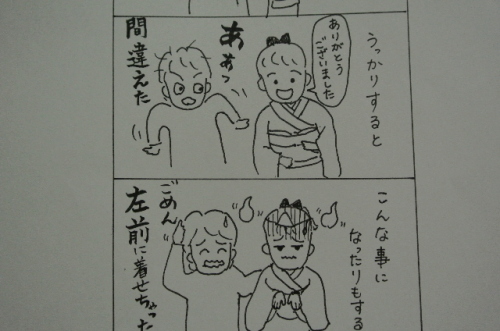 うっかりすると
ありがとう
ございました
ああっ
間違えた
こんな事に
なったりもする
ごめん
左前に着せちゃった